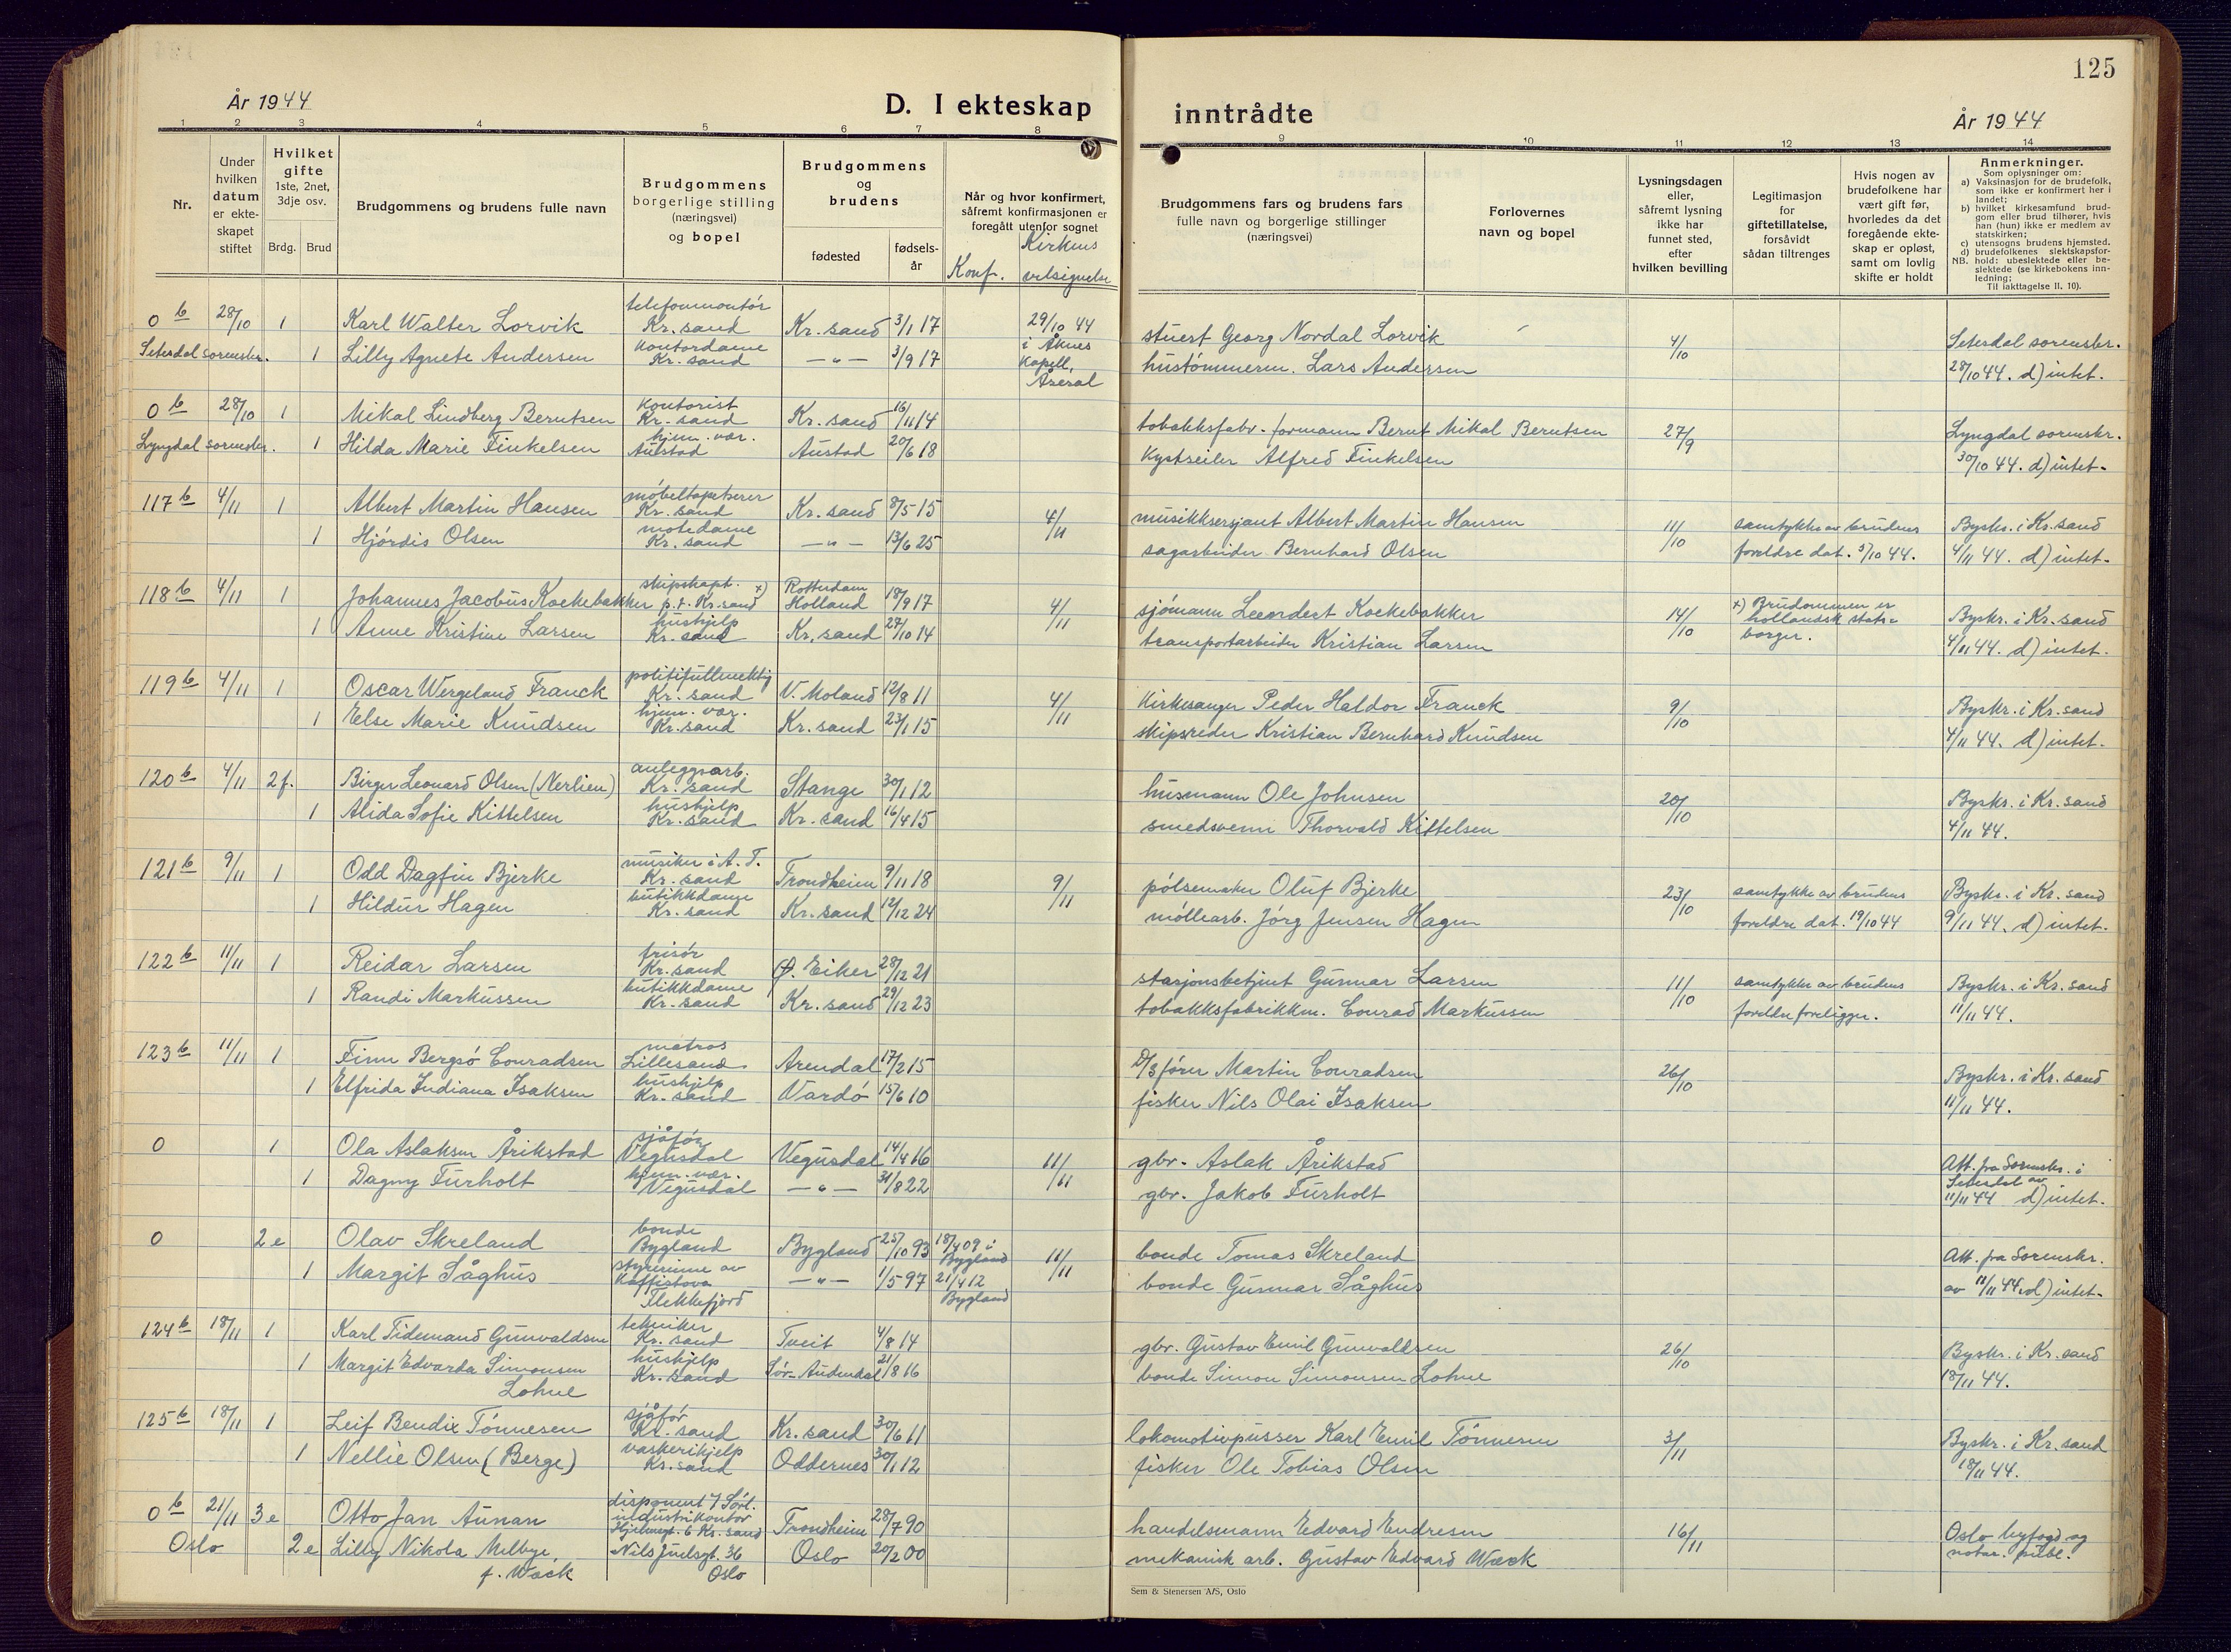 År 1944
D. I ekteskap
1 2 3 4 5 6 7 8
Nr.
Under hvilken datum er ekteskapet stiftet
Hvilket gifte
1ste, 2net, 3dje osv.
Brdg. Brud
Brudgommens og brudens fulle navn
Brudgommens borgerlige stilling (næringsvei) og bopel
Brudgommens og brudens
fødested
fødsels-år
Når og hvor konfirmert, såfremt konfirmasjonen er foregått utenfor sognet
Konf.
Kirkens velsignelse
0 b 28/10 1 Karl Walter Lorvik telefonmontør Kr.sand Kr.sand 3/1 17 29/10 44
Setesdal sorenskr. 1 Lilly Agnete Andersen kontordame Kr.sand —"— 3/9 17 i Åknes kapell, Åseral
0 b 28/10 1 Mikal Lindberg Berntsen kontorist Kr.sand Kr.sand 16/11 14
Lyngdal sorenskr. 1 Hilda Marie Finkelsen hjem.vær. Austad Austad 20/6 18
117 b 4/11 1 Albert Martin Hansen møbeltapetserer Kr.sand Kr.sand 8/5 15 4/11
1 Hjørdis Olsen motedame Kr.sand —"— 13/6 25
118 b 4/11 1 Johannes Jacobus Koekebakker skipskapt. x) p.t. Kr.sand Rotterdam Holland 18/9 17 4/11
1 Anne Kristine Larsen hushjelp Kr.sand Kr.sand 27/10 14
119 b 4/11 1 Oscar Wergeland Franck politifullmektig Kr.sand V. Moland 12/8 11 4/11
1 Else Marie Knudsen hjem.vær. Kr.sand Kr.sand 23/1 15
120 b 4/11 2f. Birger Leonard Olsen (Nerlien) anleggsarb. Kr.sand Stange 30/1 12
1 Alida Sofie Kittelsen hushjelp Kr.sand Kr.sand 16/4 15
121 b 9/11 1 Odd Dagfin Bjerke musiker i A.T. Kr.sand Trondheim 9/11 18 9/11
1 Hildur Hagen butikkdame Kr.sand Kr.sand 12/12 24
122 b 11/11 1 Reidar Larsen frisør Kr.sand Ø. Eiker 28/12 21
1 Randi Markussen butikkdame Kr.sand Kr.sand 29/12 23
123 b 11/11 1 Finn Bergsø Conradsen matros Lillesand Arendal 17/2 15
1 Elfrida Indiana Isaksen hushjelp Kr.sand Vardø 15/6 10
0 1 Ola Aslaksen Årikstad sjåfør Vegusdal Vegusdal 14/4 16 11/11
1 Dagny Furholt hjem.vær. Vegusdal —"— 31/8 22
0 2e Olav Skreland bonde Bygland Bygland 25/10 93 18/4 09 i Bygland 11/11
1 Margit Såghus styrerinne av Kaffistova Flekkefjord —"— 1/5 97 21/4 12 Bygland
124 b 18/11 1 Karl Tidemand Gunvaldsen tekniker Kr.sand Tveit 4/8 14
1 Margit Edvarda Simonsen Lohne hushjelp Kr.sand Sør-Audnedal 21/8 16
125 b 18/11 1 Leif Bendix Tønnesen sjåfør Kr.sand Kr.sand 30/6 11
1 Nellie Olsen (Berge) vaskerihjelp Kr.sand Oddernes 30/1 12
0 b 21/11 3e Otto Jan Aunan disponent i Sørl. industrikontor 6 Kr.sand Trondheim 28/7 90
Oslo 2e Lilly Nikola Melbye f. Wæck Nils Juelsgt. 36 Oslo Oslo 20/2 00
125
inntrådte
År 1944
9 10 11 12 13 14
Brudgommens fars og brudens fars fulle navn og borgerlige stillinger (næringsvei)
Forlovernes navn og bopel
Lysningsdagen eller, såfremt lysning ikke har funnet sted, efter hvilken bevilling
Legitimasjon for giftetillatelse, forsåvidt sådan tiltrenges
Hvis nogen av brudefolkene har vært gift før, hvorledes da det foregående ekteskap er opløst, samt om lovlig skifte er holdt
Anmerkninger.
Som oplysninger om:
a) Vaksinasjon for de brudefolk, som ikke er konfirmert her i landet;
b) hvilket kirkesamfund brudgom eller brud tilhører, hvis han (hun) ikke er medlem av statskirken;
c) utensogns brudens hjemsted.
d) brudefolkenes slektskapsforhold: ubeslektede eller beslektede (se kirkebokens innledning;
NB. Til iakttagelse II. 10).
stuert Georg Nordal Lorvik 4/10 Setesdal sorenskr.
hustømmerm. Lars Andersen 28/10 44. d) intet.
tobakksfabr.formann Bernt Mikal Berntsen 27/9 Lyngdal sorenskr.
Kystseiler Alfred Finkelsen 30/10 44. d) intet.
musikksersjant Albert Martin Hansen 11/10 samtykke av brudens Byskr. i Kr.sand
sagarbeider Bernhard Olsen foreldre dat. 3/10 44. 4/11 44. d) intet.
sjømann Leendert Koekebakker 14/10 x) Brudgommen er hollandsk stats- borger. Byskr. i Kr.sand
transportarbeider Kristian Larsen 4/11 44. d) intet.
Kirkesanger Peder Haldor Franck 9/10 Byskr. i Kr.sand
skipsreder Kristian Bernhard Knudsen 4/11 44. d) intet.
husmann Ole Johnsen 20/10 Byskr. i Kr.sand
smedsvenn Thorvald Kittelsen 4/11 44.
pølsemaker Oluf Bjerke 23/10 samtykke av brudens Byskr. i Kr.sand
møllearb. Jørg Jensen Hagen foreldre dat. 19/10 44 9/11 44. d) intet.
stasjonsbetjent Gunnar Larsen 11/10 samtykke av brudens Byskr. i Kr.sand
tobakksfabrikkm. Conrad Markussen foreldre foreligger. 11/11 44.
D/Sfører Martin Conradsen 26/10 Byskr. i Kr.sand
fisker Nils Olai Isaksen 11/11 44.
gbr. Aslak Årikstad Att. fra Sorenskr. i Setesdal av
gbr. Jakob Furholt 11/11 44 d) intet.
bonde Tomas Skreland Att. fra Sorenskr.
bonde Gunnar Såghus av 11/11 44. d) intet.
gbr. Gustav Emil Gunvaldsen 26/10 Byskr. i Kr.sand
bonde Simon Simonsen Lohne 18/11 44.
lokomotivpusser Karl Emil Tønnesen 3/11 Byskr. i Kr.sand
fisker Ole Tobias Olsen 18/11 44.
handelsmann Edvard Endresen 16/11 Oslo byfogd og
mekanisk arb. Gustav Edvard Wæck notar. publ.
Sem & Stenersen A/S, Oslo